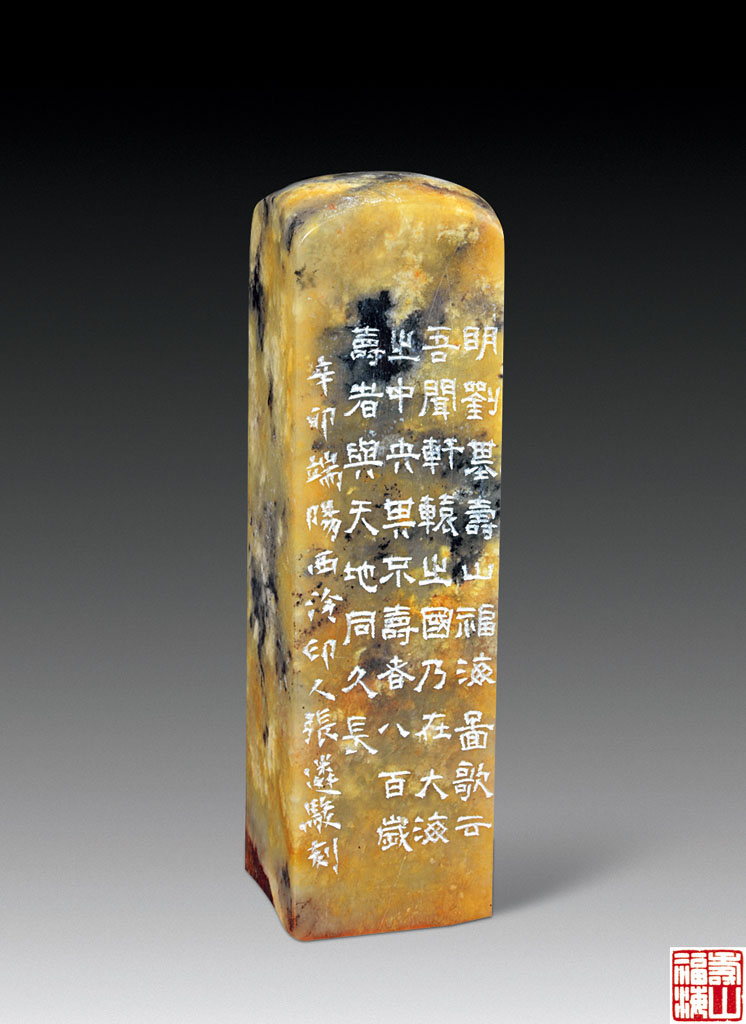 眀劉基壽山福海啚歌云
吾聞軒轅之國乃在大海
之中央其不壽者八百歲
壽者與天地同久長
辛卯端陽西泠印人張遴駿刻
壽山
福海